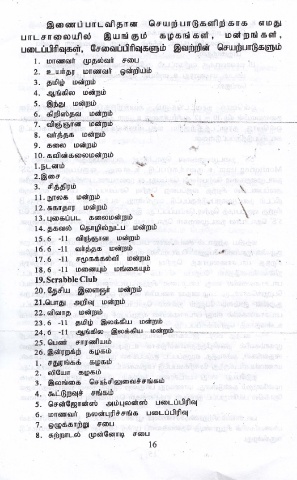 இணைப்பாடவிதான செயற்பாடுகளிற்காக எமது
பாடசாலையில் இயங்கும் கழகங்கள், மன்றங்கள்,
படைப்பிரிவுகள், சேவைப்பிரிவுகளும் இவற்றின் செயற்பாடுகளும்
1. மாணவர் முதல்வர் சபை
2. உயர்தர மாணவர் ஒன்றியம்
3. தமிழ் மன்றம்
4. ஆங்கில மன்றம்
5. இந்து மன்றம்
6. கிறிஸ்தவ மன்றம்
7. விஞ்ஞான மன்றம்
8. வர்த்தக மன்றம்
9. கலை மன்றம்
10. கவின்கலைமன்றம்
1.நடனம்
2.இசை
3. சித்திரம்
11. நூலக மன்றம்
12. சுகாதார மன்றம்
13. புகைப்பட கலைமன்றம்
14. தகவல் தொழில்நுட்ப மன்றம்
15. 6 -11 விஞ்ஞான மன்றம்
16. 6 -11 வர்த்தக மன்றம்
17. 6 -11 சமூகக்கல்வி மன்றம்
18. 6 -11 மனையும் மங்கையும்
19. Scrabble Club
20. தேசிய இளைஞர் மன்றம்
21.பொது அறிவு மன்றம்
22. விவாத மன்றம்
23. 6 -11 தமிழ் இலக்கிய மன்றம்
24. 6 -11 ஆங்கில இலக்கிய மன்றம்
25. பெண் சாரணியம்
26. இன்ரறக்ற் கழகம்
1. சதுரங்கக் கழகம்
2. லியோ கழகம்
3. இலங்கை செஞ்சிலுவைச்சங்கம்
4. கூட்டுறவுச் சங்கம்
5. சென்ஜோன்ஸ் அம்புலன்ஸ் படைப்பிரிவு
6. மாணவர் நலன்புரிச்சங்க படைப்பிரிவு
7. ஒழுக்காற்று சபை
8. சுற்றாடல் முன்னோடி சபை
16